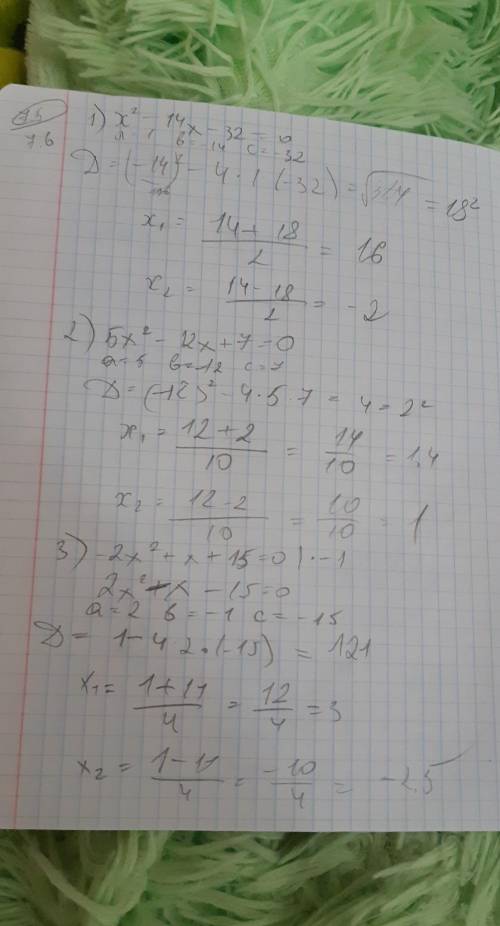 7.5
7.6
1) x² - 14x - 32 = 0
в = -14 c = -32
D = (-14)² - 4 · 1 (-32) = = 18²
x₁ = (14 + 18)/2 = 16
x₂ = (14 - 18)/2 = -2
2) 5x² - 12x + 7 = 0
a = 5 в = -12 c = 7
D = (-12)² - 4 · 5 · 7 = 4 = 2²
x₁ = (12 + 2)/10 = 14/10 = 1,4
x₂ = (12 - 2)/10 = 10/10 = 1
3) -2x² + x + 15 = 0 | · -1
2x² - x - 15 = 0
a = 2 в = -1 c = -15
D = 1 - 4 2 · (-15) = 121
x₁ = (1 + 11)/4 = 12/4 = 3
x₂ = (1 - 11)/4 = -10/4 = -2,5